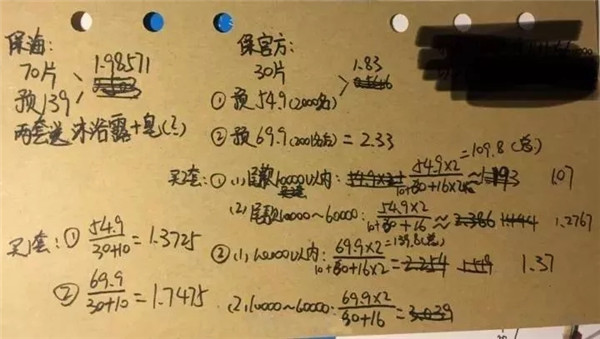 保海：
70片
1.98571
预139
两套送 沐浴露+皂(?)
保官方：
30片
1.83
① 预54.9(2000名)
② 预69.9(2001名后) = 2.33
买1套：① 54.9/30+10 = 1.3725
② 69.9/30+10 = 1.7475
买2套：① (1) 尾款10000以内： 54.9×2/10+80+16×2 = 109.8(总) ≈ 1.07
(2) 尾款10000~60000： 54.9×2/10+80+16 ≈ 1.2767
② (1) 10000以内： 69.9×2/10+80+16×2 = 139.8(总) 1.37
(2) 10000~60000： 69.9×2/80+16 =